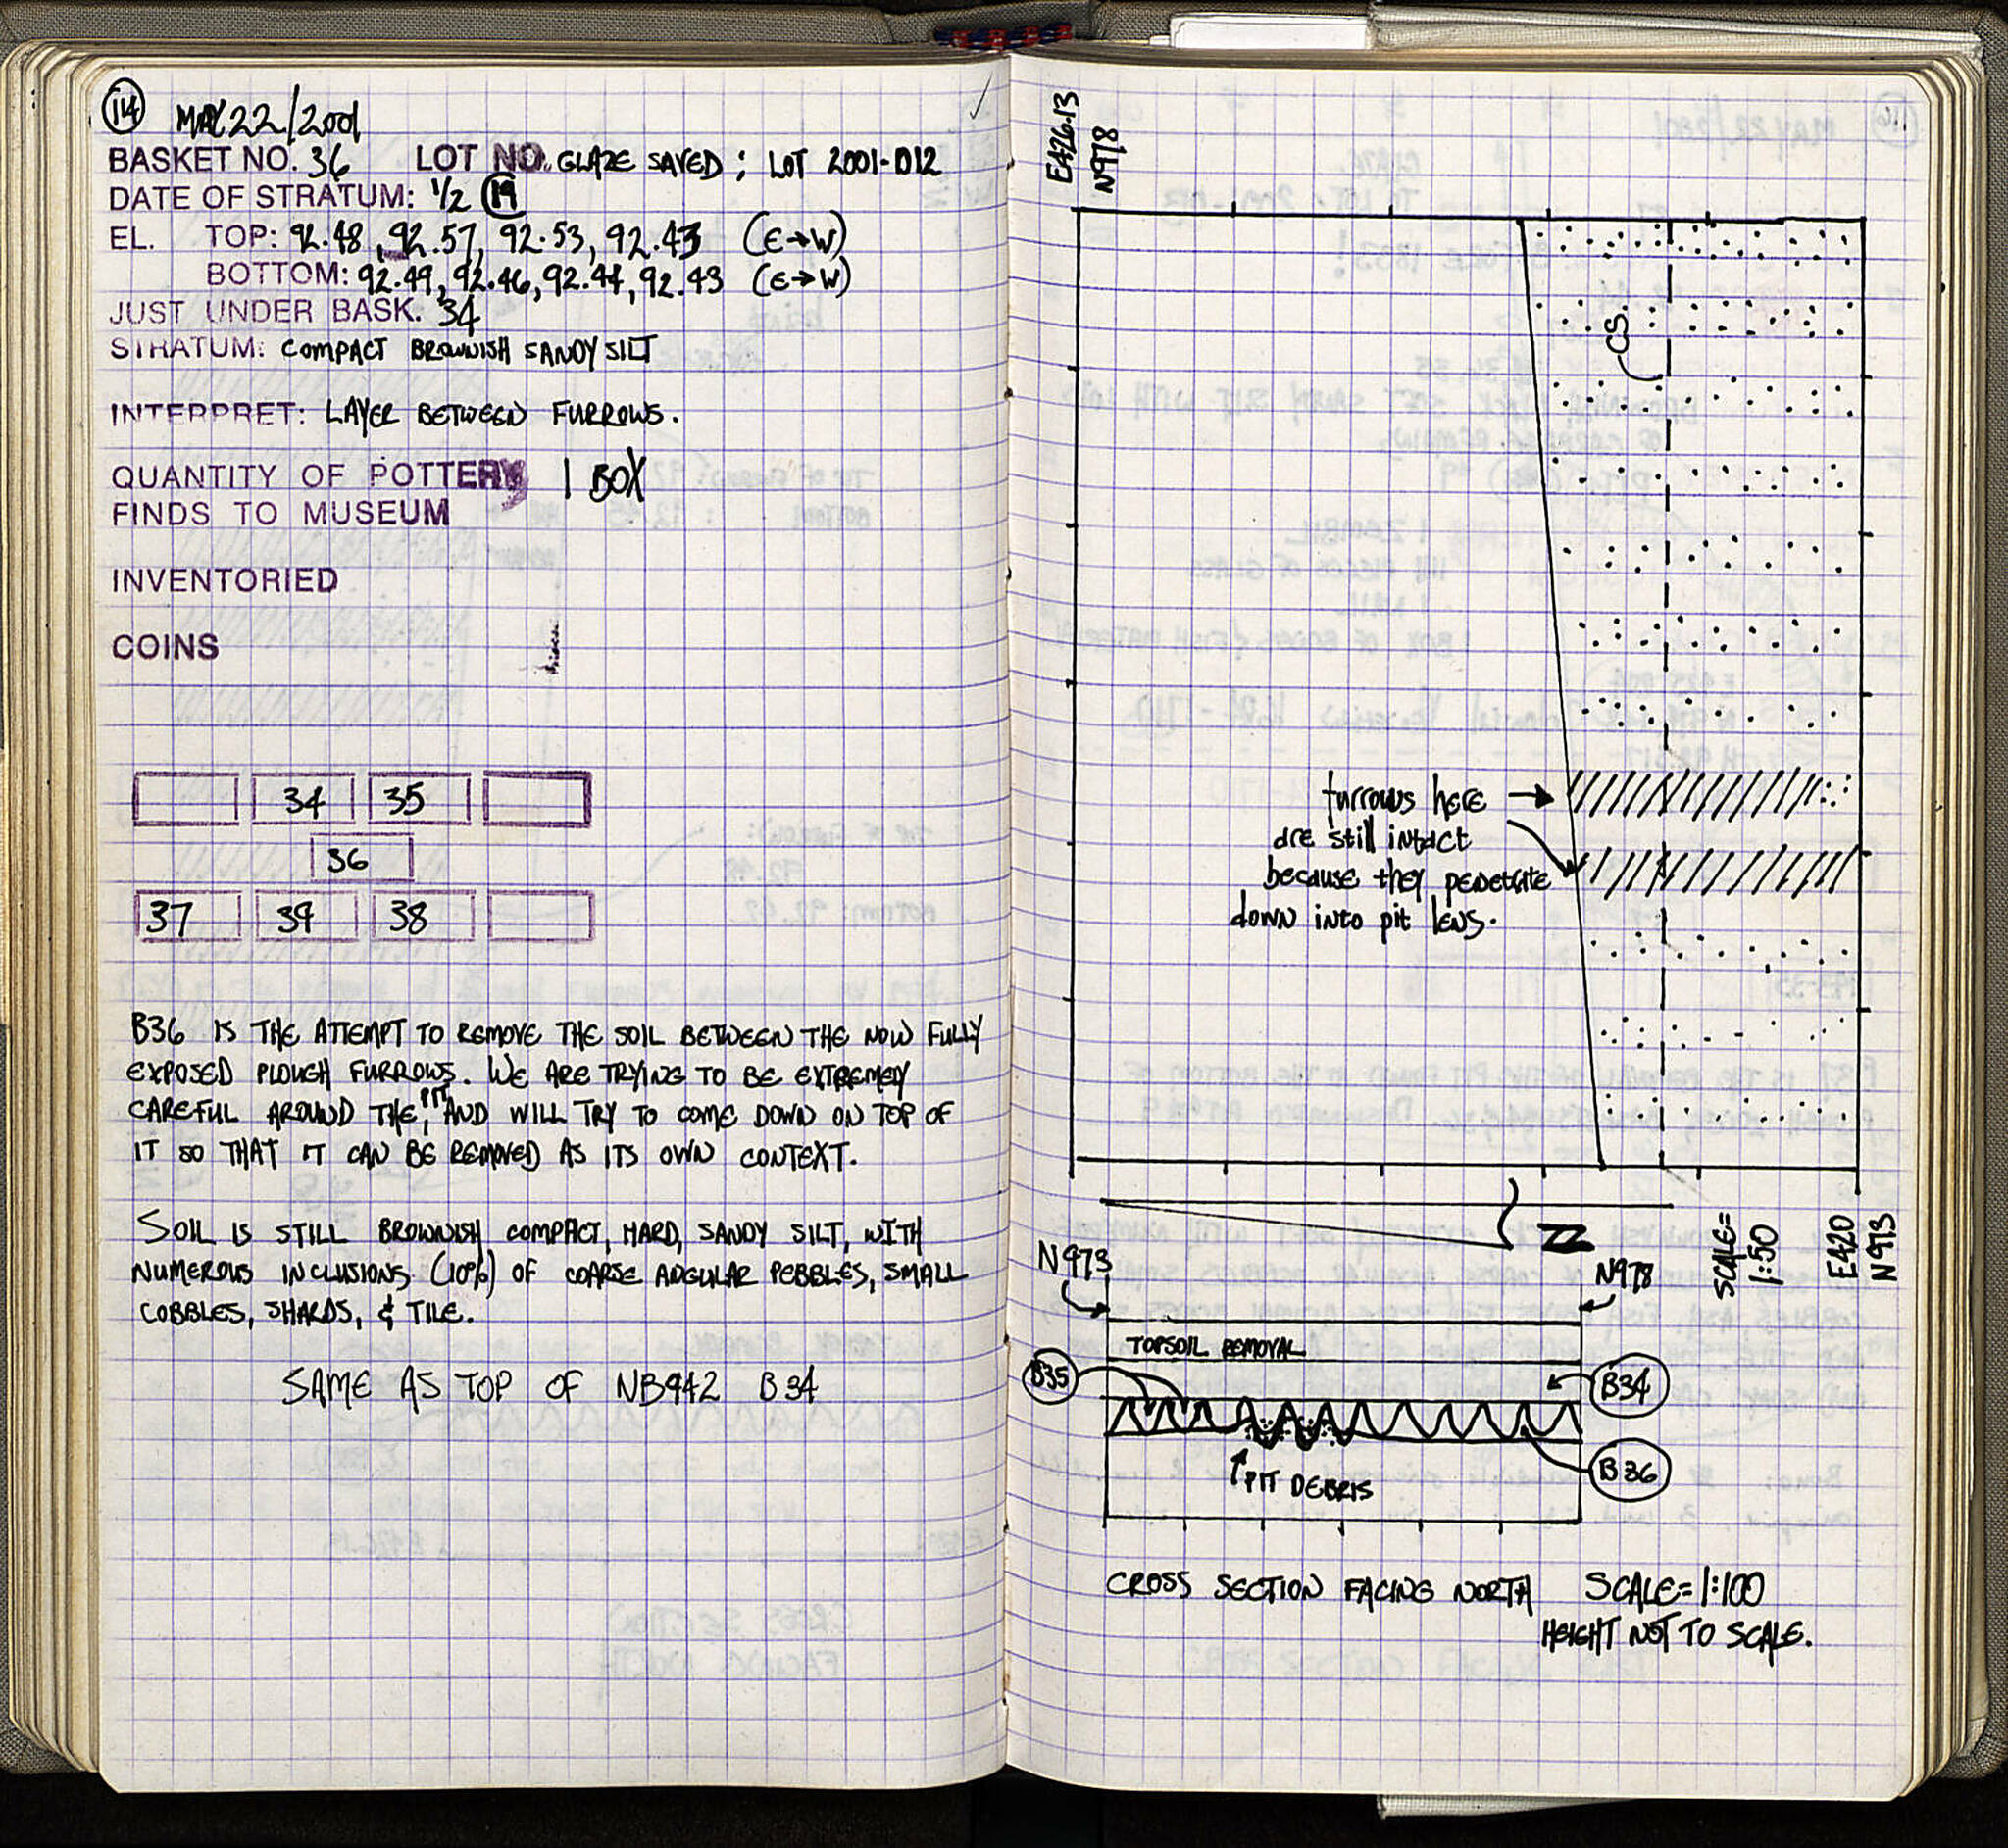 114 MAY 22/2001
BASKET NO. 36 LOT NO. GLAZE SAVED; LOT 2001-012
DATE OF STRATUM: 1/2 19
EL. TOP: 92.48, 92.57, 92.53, 92.43 (E→W)
BOTTOM: 92.49, 92.46, 92.44, 92.43 (E→W)
JUST UNDER BASK. 34
STRATUM: COMPACT BROWNISH SANDY SILT
INTERPRET: LAYER BETWEEN FURROWS.
QUANTITY OF POTTERY 1 BOX
FINDS TO MUSEUM
INVENTORIED
COINS
34 35
36
37 39 38
B36 IS THE ATTEMPT TO REMOVE THE SOIL BETWEEN THE NOW FULLY
EXPOSED PLOUGH FURROWS. WE ARE TRYING TO BE EXTREMELY
CAREFUL AROUND THE PIT, AND WILL TRY TO COME DOWN ON TOP OF
IT SO THAT IT CAN BE REMOVED AS ITS OWN CONTEXT.
SOIL IS STILL BROWNISH COMPACT, HARD, SANDY SILT, WITH
NUMEROUS INCLUSIONS (10%) OF COARSE ANGULAR PEBBLES, SMALL
COBBLES, SHARDS, & TILE.
SAME AS TOP OF NB942 B34
E426.13
N978
CS.
furrows here
are still intact
because they penetrate
down into pit lens.
Z
SCALE=
1:50
E420
N973
N973
N978
TOPSOIL REMOVAL
B35
B34
B36
PIT DEBRIS
CROSS SECTION FACING NORTH SCALE=1:100
HEIGHT NOT TO SCALE.